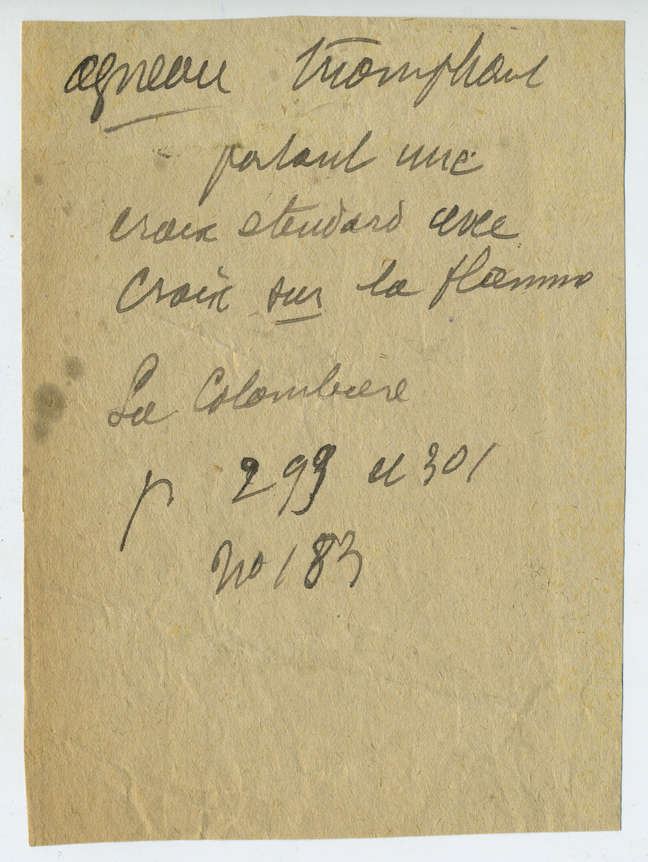 agneau triomphant
portant une
croix étendard avec
croix sur la flamme
La Colombière
p 299 et 301
no 183